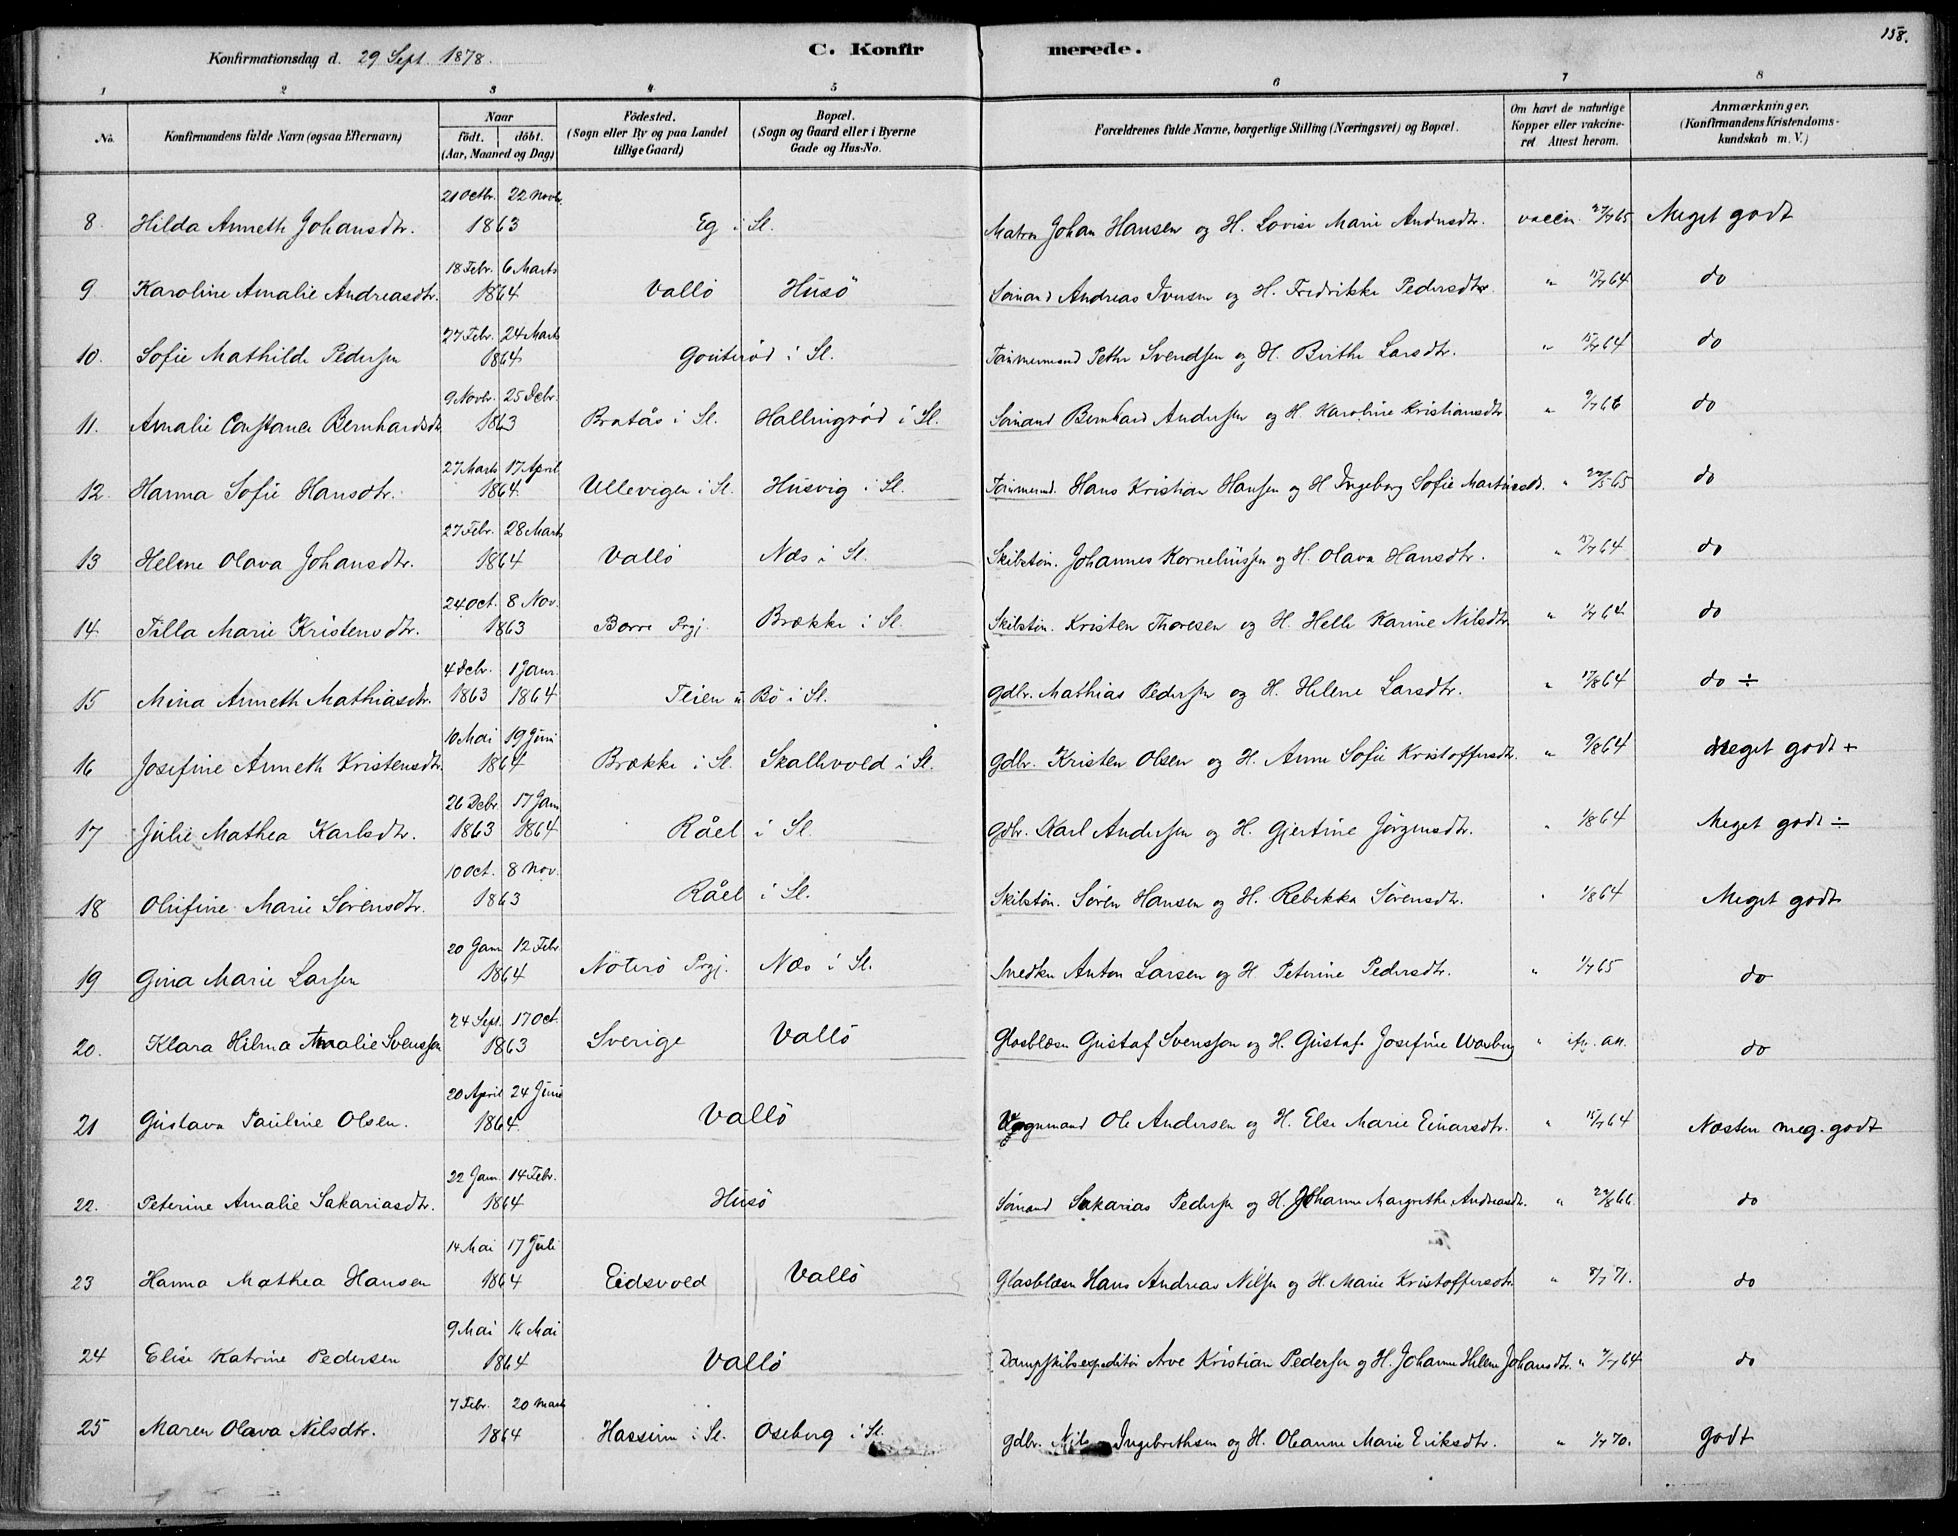 158.
Konfirmationsdag d. 29 Sept. 1878.
C. Konfirmerede.
1 2 3 4 5 6 7 8
No. Konfirmandens fulde Navn (ogsaa Efternavn) Naar født. døbt. (Aar, Maaned og Dag) Fødested. (Sogn eller By og paa Landet tillige Gaard) Bopæl. (Sogn og Gaard eller i Byerne Gade og Hus-No. Forældrenes fulde Navne, borgerlige Stilling (Næringsvei) og Bopæl. Om havt de naturlige Kopper eller vakcineret. Attest herom. Anmærkninger. (Konfirmandens Kristendomskundskab m. V.)
8. Hilda Anneth Johansdtr. 21 Octbr. 22 Novbr. 1863 Eg i Sl. Matros Johan Hansen og H. Lovise Marie Andrsdtr. vaccin. 65 Meget godt
9 Karoline Amalie Andreasdtr. 18 Febr. 6 Marts 1864 Vallö Husö Sömand Andreas Iversen og H. Fredrikke Pedersdtr. " 64 do
10. Sofie Mathilde Pedersen 27 Febr. 24 Marts 1864 Gouterød i Sl. Tömmermand Petter Svendsen og H. Birthe Larsdtr. " 64 do
11. Amalie Constance Bernhardsdtr 9 Novbr. 25 Decbr. 1863 Bratås i Sl. Hallingrød i Sl. Sömand Bernhard Andersen og H. Karoline Kristiansdtr " 9/7 66 do
12. Hanna Sofie Hansdtr. 27 Marts 17 April 1864 Ullevigen i Sl. Husvig i Sl. Tömmermd. Hans Kristian Hansen og H Ingeborg Sofie Martinsdtr. " 22/5 65 do
13 Helene Olava Johansdtr. 27 Febr. 28 Marts 1864 Vallö Næs i Sl. Skibstöm. Johannes Korneliussen og H. Olava Hansdtr. " 64 do
14 Tilla Marie Kristensdtr. 24 Oct. 8 Nov. 1863 Borre Prgj. Brække i Sl. Skibstöm. Kristen Thoresen og H. Helle Karine Nilsdtr. " 1/7 64. do
15 Mina Anneth Mathiasdtr. 4 Decbr. 1 Janr. 1863 1864 Teien u Bö i Sl. gdbr. Mathias Pedersen og H. Helene Larsdtr. " 17/8 64 do ÷
16 Josefine Anneth Kristensdtr. 10 Mai 19 Juni 1864 Brække i Sl. Skallevold i Sl. gdbr. Kristen Olsen og H. Anne Sofie Kristoffersdtr. " 9/8 64 Meget godt +
17 Julie Mathea Karlsdtr. 26 Decbr. 17 Jan 1863 1864 Råel i Sl. gdbr. Karl Andersen og H. Gjertine Jörgensdtr. " 1/8 64 Meget godt ÷
18 Olufine Marie Sörensdtr. 10 Oct. 8 Nov. 1863 Råel i Sl. Skibstöm. Sören Hansen og H. Rebekka Sörensdtr. " 1/8 64 Meget godt
19 Gina Marie Larsen 20 Jan 12 Febr 1864 Nöterö Prgj. Næs i Sl. Snedker Anton Larsen og H. Peterine Pedersdtr. " 1/7 65 do
20. Klara Hilma Amalie Svensson 24 Sept. 17 Oct. 1863 Sverige Vallö Glasblæser Gustaf Svensson og H. Gustafa Josefine Warberg " ifg. att. do
21 Gustava Pauline Olsen. 20 April 24 Juni 1864 Vallö Vognmand Ole Andersen og H. Else Marie Einarsdtr. " 15/7 64 Næsten meg. godt
22. Peterine Amalie Sakariasdtr. 22 Jan. 14 Febr. 1864 Husö Sömand Sakarias Pedersen og H. Johanne Margrethe Andreasdtr. " 22/8 66. do
23 Hanna Mathea Hansen 14 Mai 17 Juli 1864 Eidsvold Vallö Glasblæser Hans Andreas Nilsen og H. Marie Kristoffersdtr " 8/7 71. do
24 Elise Katrine Pedersen 9 Mai 16 Mai 1864 Vallö Dampskibsexpeditör Arve Kristian Pedersen og H. Johanne Helene Johansdtr. " 64 do
25 Maren Olava Nilsdtr. 7 Febr. 20 Marts 1864 Hasseim i Sl. Oseberg i Sl. gdbr. Nils Ingebrethsen og H. Oleanne Marie Eriksdtr. " 1/7 70. Godt